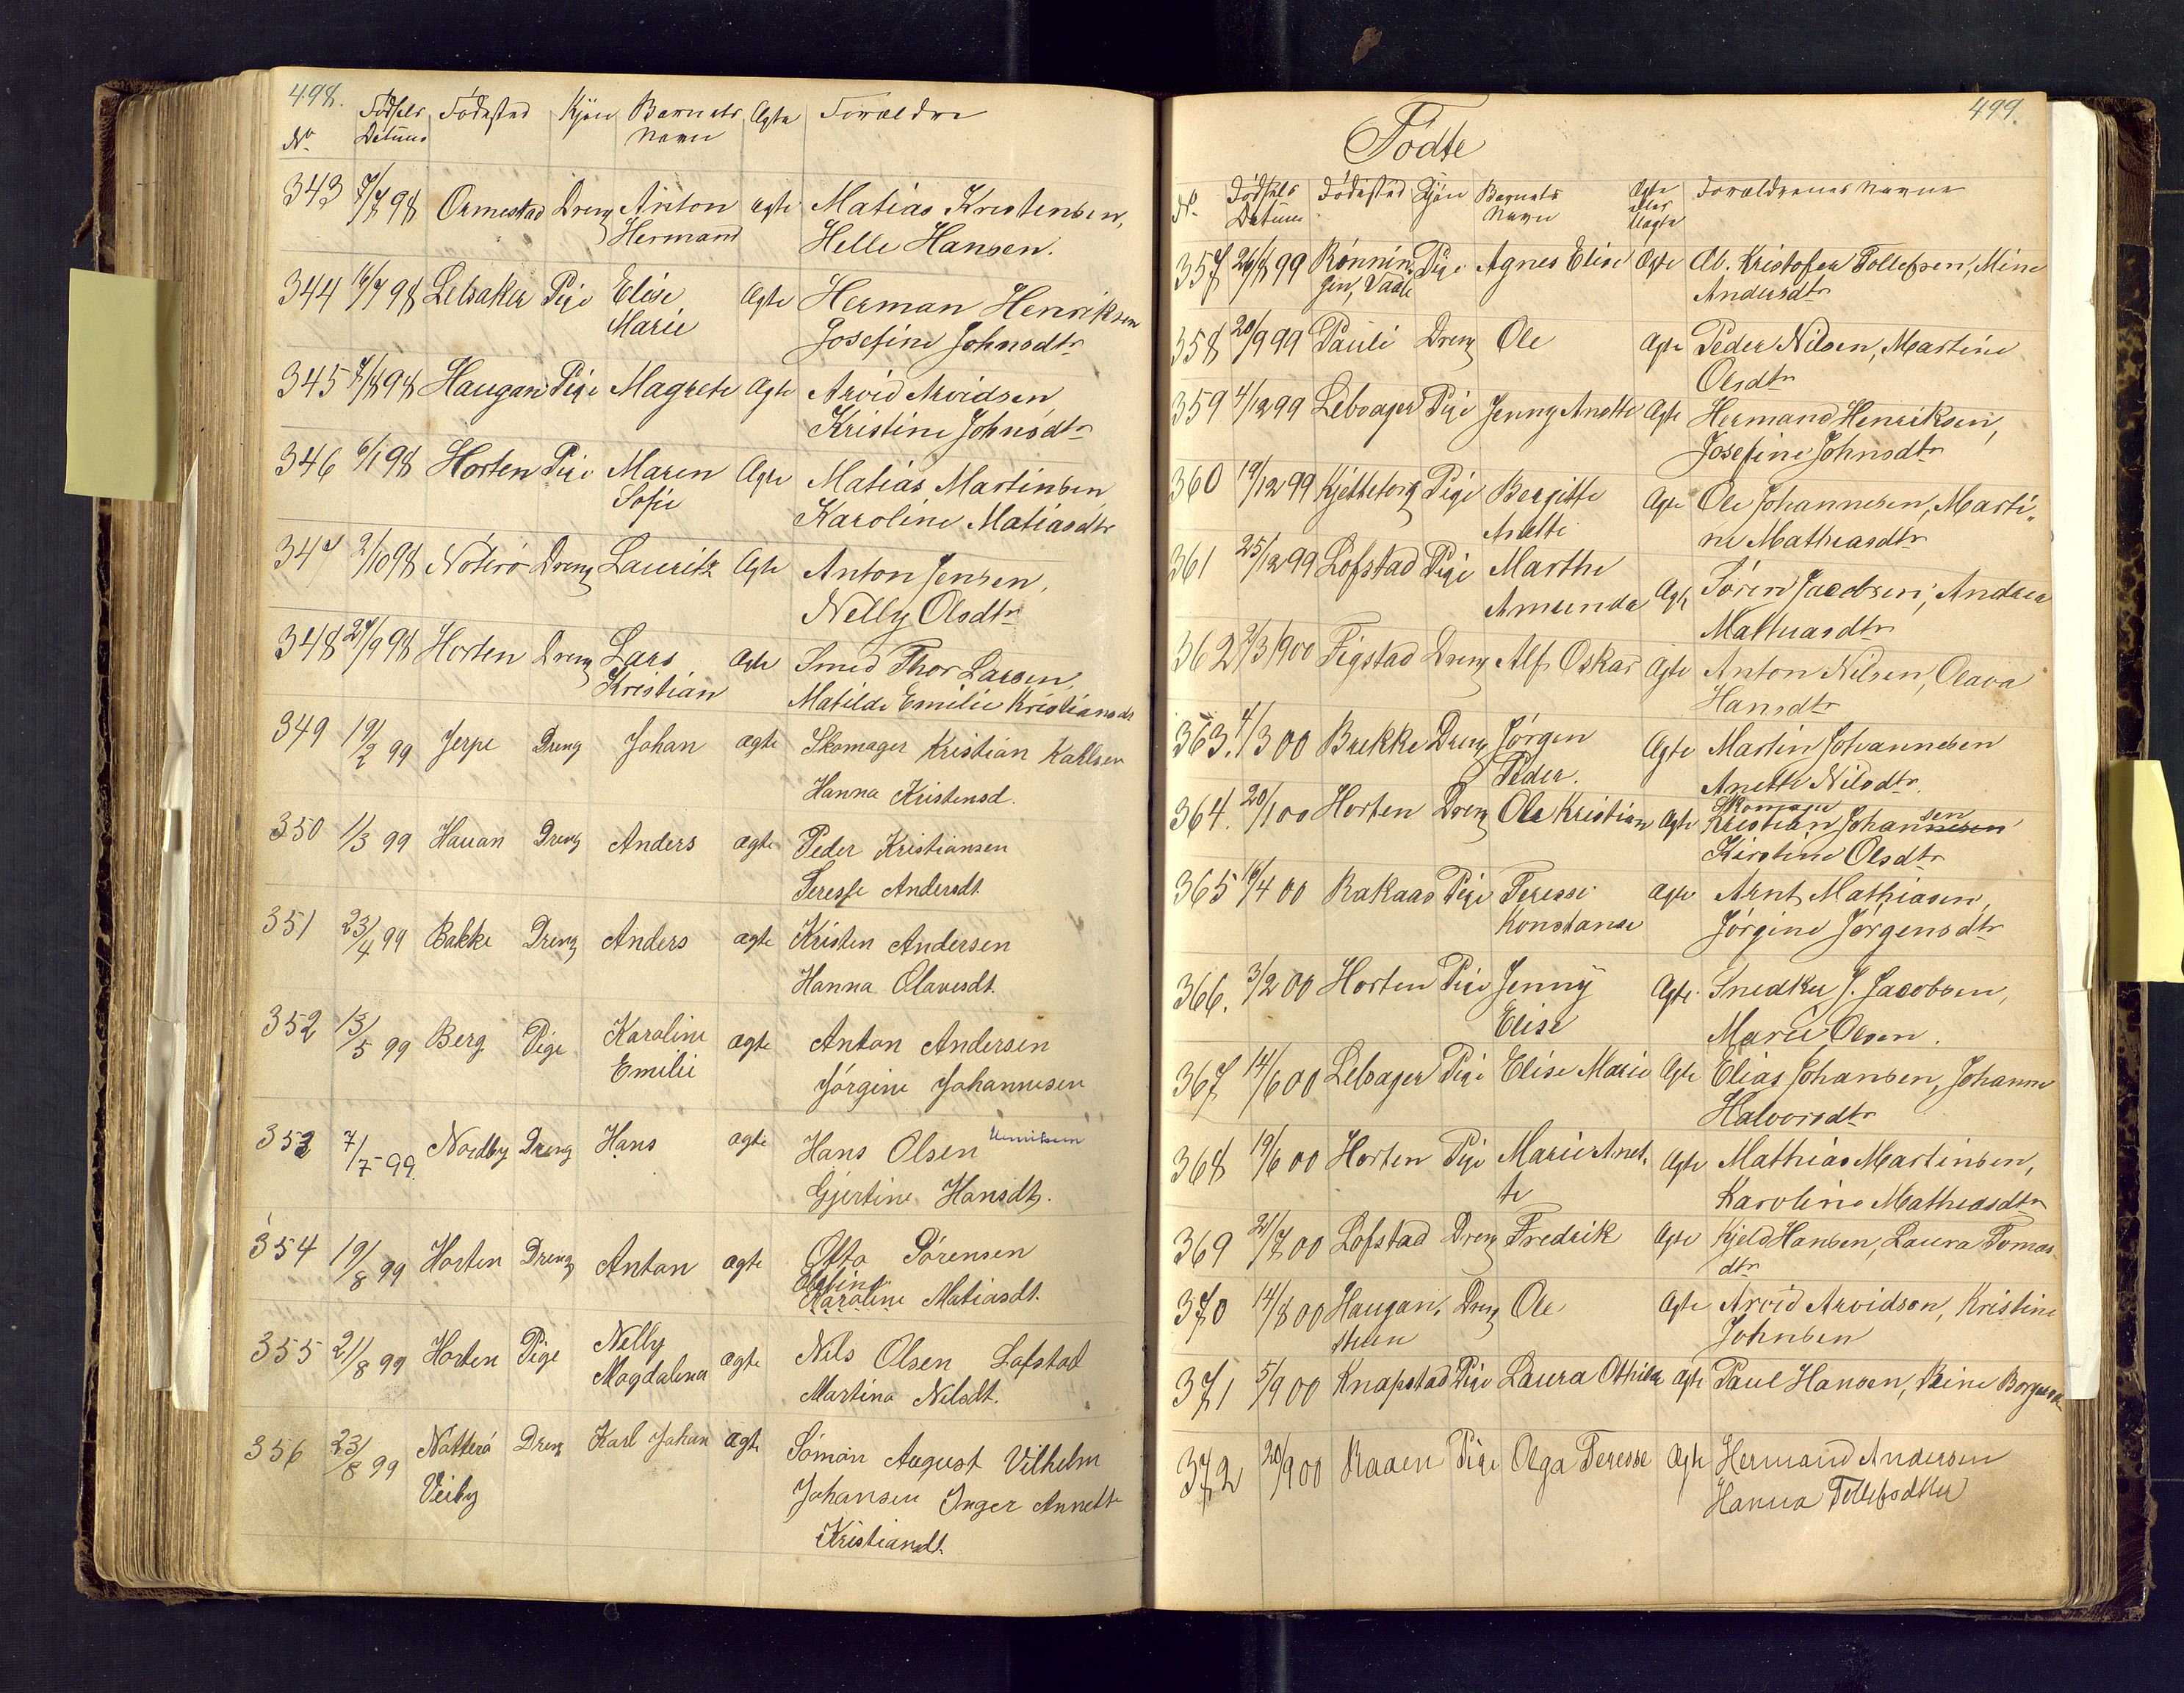 498.
No Fødsels Fødested Kjøn Barnets Ægte Forældre
Datum Navn
343 7/7 98 Ormestad Dreng Anton ægte Matias Kristensen,
Hermand Helle Hansen.
344 16/7 98 Lebsaker Pige Elise Ægte Herman Henriksen
Marie Josefine Johnsdtr
345 7/8 98 Haugan Pige Magrete Ægte Arvid Arvidsen
Kristine Johnsdtr
346 6/1 98 Horten Pige Maren Ægte Matias Martinsen
Sofie Karoline Matiasdtr
347 2/10 98 Nöterö Dreng Lauritz Ægte Anton Jensen,
Nelly Olsdtr
348 24/9 98 Horten Dreng Lars Ægte Smed Thor Larsen,
Kristian Matilde Emilie Kristiansdr
349 19/2 99 Jerpe Dreng Johan ægte Skomager Kristian Karlsen
Hanna Kristensd.
350 1/3 99 Hauan Dreng Anders ægte Peder Kristiansen
Teresse Andersdt.
351 23/4 99 Bakke Dreng Anders ægte Kristen Andersen
Hanna Olavesdt.
352 13/5 99 Berg Pige Karoline ægte Anton Andersen
Emilie Jörgine Johannesen
353 7/7-99. Nordby Dreng Hans ægte Hans Olsen
Gjertine Hansdt.
354 19/8 99 Horten Dreng Anton ægte Otto Sörensen
Karoline Matiasdt.
355 21/8 99 Horten Pige Nelly ægte Nils Olsen Lofstad
Magdalena Martina Nilsdt.
356 23/8 99 Nötterö Dreng Karl Johan ægte Simon August Vilhelm
Veiby Johansen Inger Annette
Kristiansdt.
499.
Födte
No. Fødsels Fødested Kjøn Barnets Ægte Forældrenes Navne
Datum Navn eller
Uægte
357 26/7 99 Rönnin Pige Agnes Elise Ægte Ol. Kristofer Tollefsen, Mine
gen, Vaale Andersdtr
358 20/9 99 Pauli Dreng Ole Ægte Peder Nilsen, Martine
Olsdtr
359 4/12 99 Lebsager Pige Jenny Anette Ægte Hermand Henriksen,
Josefine Johnsdtr
360 19/12 99 Pige Bergitte Ægte Ole Johannesen, Marti-
Anette ne Mathiasdtr
361 25/12 99 Lofstad Pige Marthe
Amunda Ægte Sören Jacobsen, Andrea
Mathiasdtr
362 2/3 1900 Figstad Dreng Alf Oskar Ægte Anton Nilsen, Olava
Hansdtr
363. 4/3 00 Bakke Dreng Jörgen Ægte Martin Johannesen
Peder. Anette Nilsdtr.
364. 20/1 00 Horten Dreng Ole Kristian Ægte Kristian Johannesen sen
Kirstine Olsdtr
365 16/4 00 Rakaas Pige Teresse ægte Arnt Mathiasen,
Konstanse Jörgine Jörgensdtr
366. 3/2 00 Horten Pige Jenny Ægte. Snedker J. Jacobsen,
Elise Marie Olsen.
367 14/6 00 Lebsager Pige Elise Marie Ægte Elias Johansen, Johanne
Halvorsdtr
368 19/6 00 Horten Pige Marie Anet- Ægte Mathias Martinsen,
te Karoline Mathiasdtr
369 21/7 00 Lofstad Dreng Fredrik Ægte Kjeld Hansen, Laura Tomas-
dtr
370 14/8 00 Haugan, Dreng Ole Ægte Arvid Arvidson, Kristine
Johnsen
371 5/9 00 Knapstad Pige Laura Othilie ægte Paul Hansen,
372 20/9 00 Raaen Pige Olga Teresse Ægte Hermand Andersen
Hanna